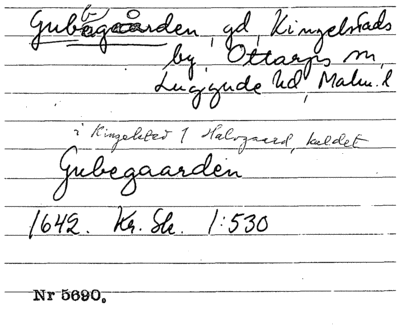 Gubbegården, gd, Kingelstads
by, Ottarps sn,
Luggude hd, Malm. l
i Kingelsted 1 Halvgaard, kaldet
Gubegaarden
1642. Kr. Sk. 1:530
Nr 5690.